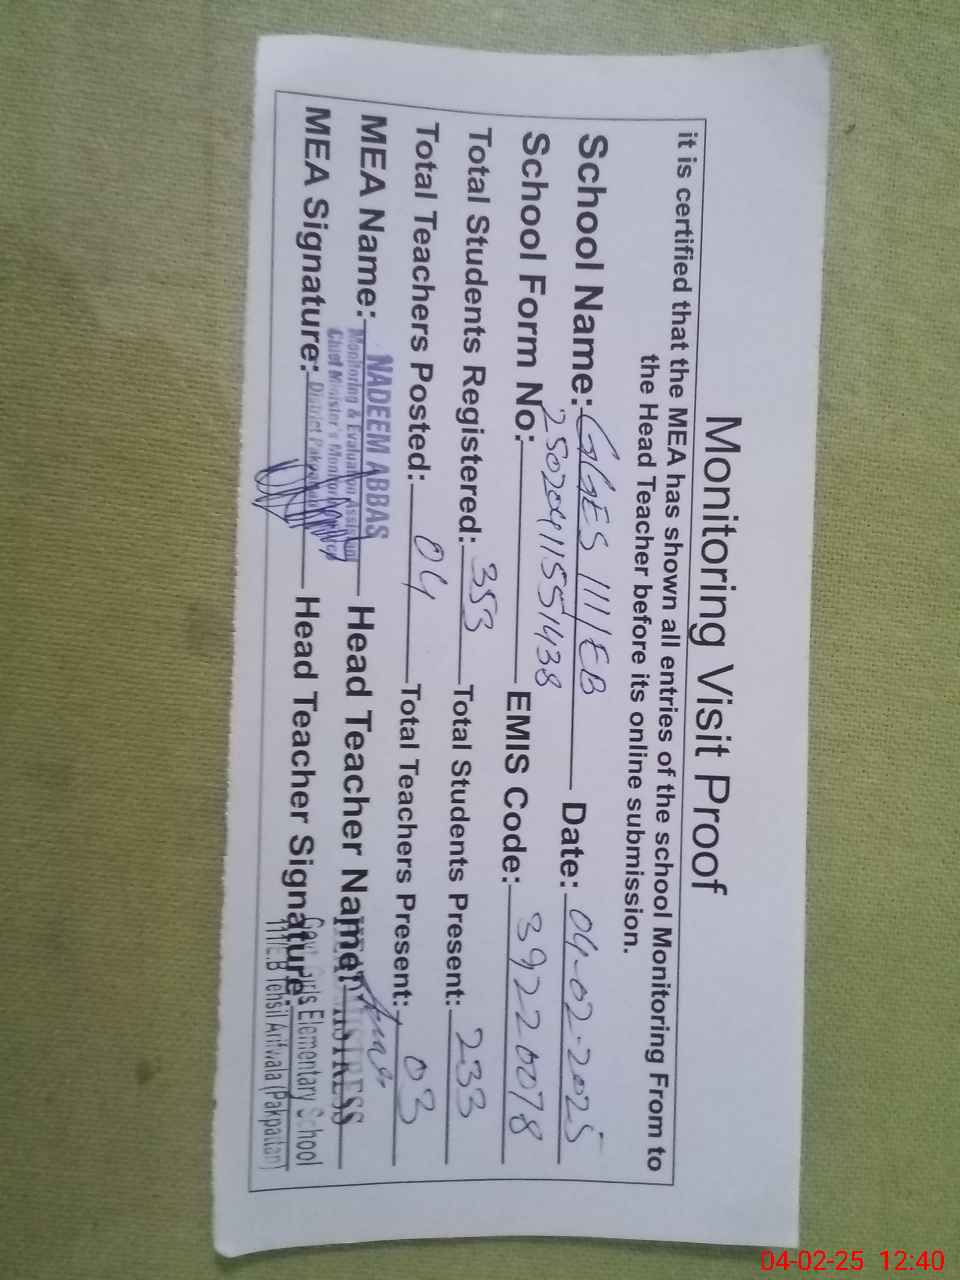 Monitoring Visit Proof
it is certified that the MEA has shown all entries of the school Monitoring From to
the Head Teacher before its online submission.
School Name: GGES 111/EB Date: 04-02-2025
School Form No: EMIS Code: 39220078
Total Students Registered: 353 Total Students Present: 233
Total Teachers Posted: 04 Total Teachers Present: 03
MEA Name: NADEEM ABBAS Head Teacher Name: HEADMISTRESS
Monitoring & Evaluation Assistant
Chief Minister's Monitoring
District Pakpattan
MEA Signature: Head Teacher Signature:
Govt Girls Elementary School
111/E.B Tehsil Arifwala (Pakpattan)
04-02-25 12:40